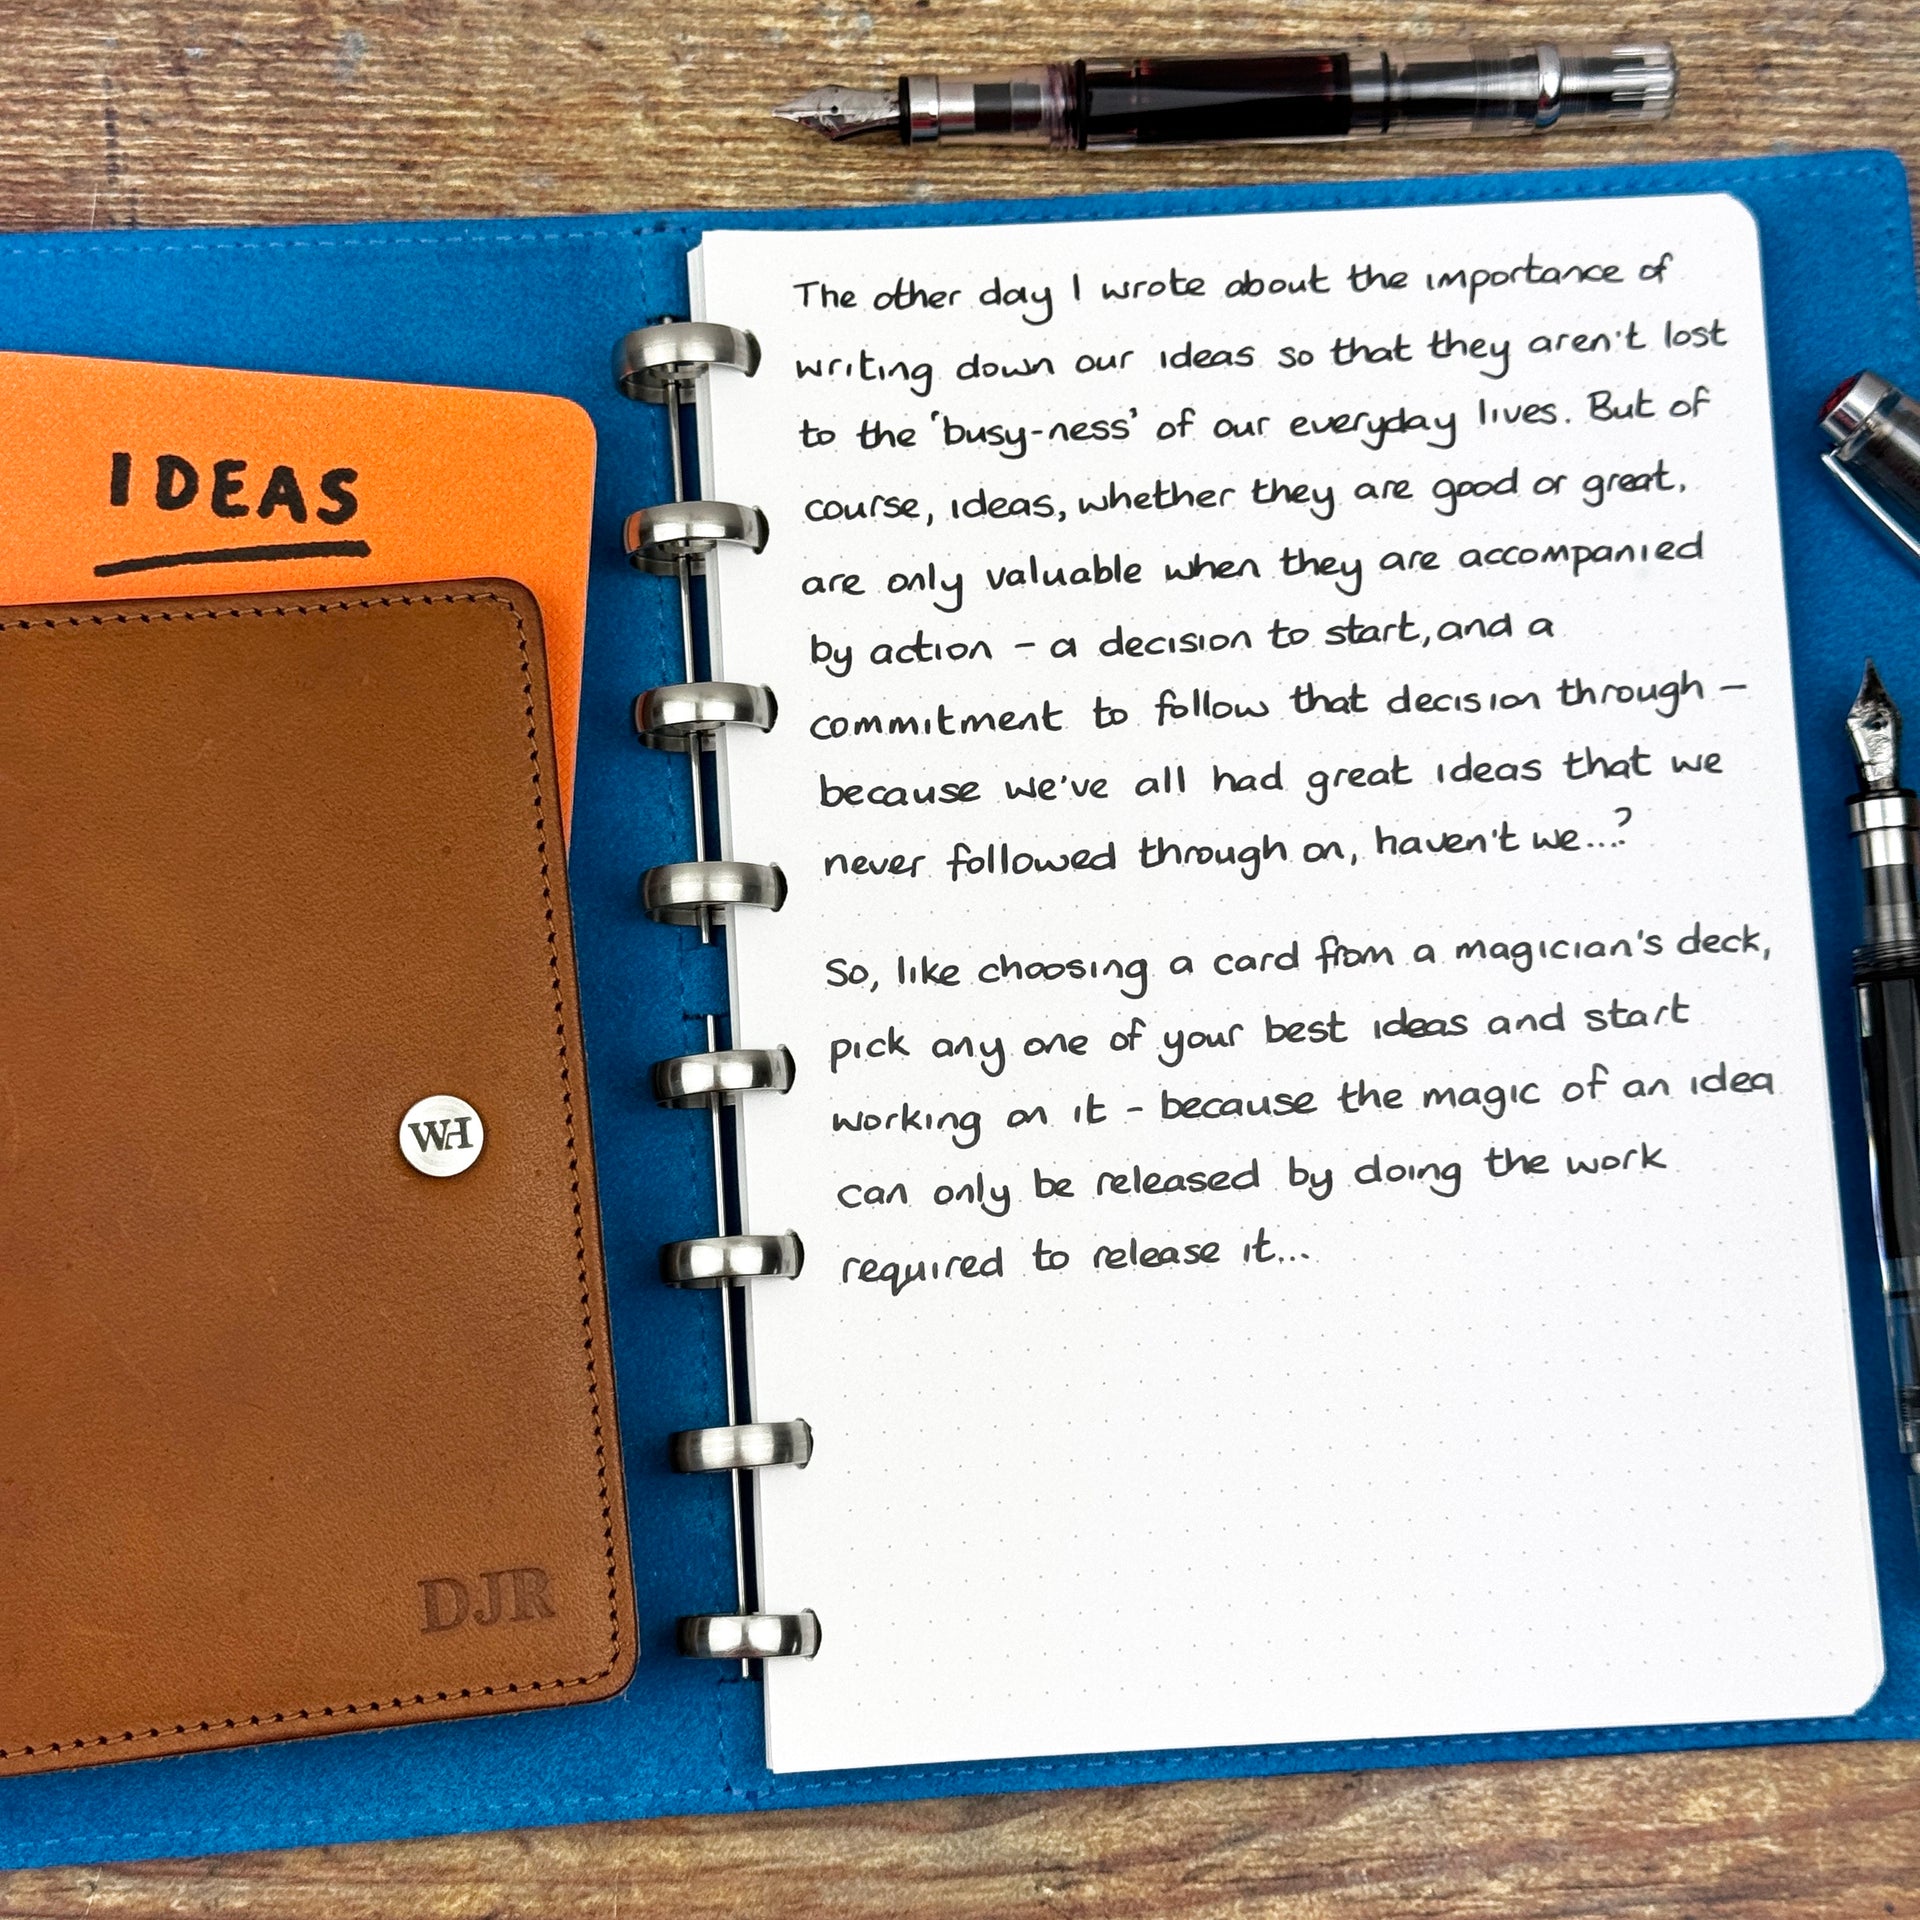 IDEAS
WH
DJR
The other day I wrote about the importance of
writing down our ideas so that they aren't lost
to the 'busy-ness' of our everyday lives. But of
course, ideas, whether they are good or great,
are only valuable when they are accompanied
by action – a decision to start, and a
commitment to follow that decision through –
because we've all had great ideas that we
never followed through on, haven't we...?
So, like choosing a card from a magician's deck,
pick any one of your best ideas and start
working on it – because the magic of an idea
can only be released by doing the work
required to release it...